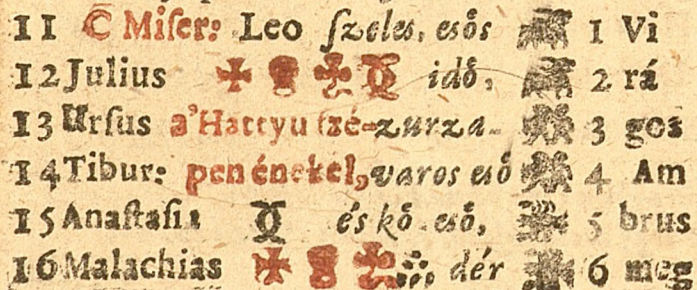 11 C Miser: Leo szeles, esős 1 Vi
12 Julius idő, 2 rá
13 Ursus a'Hattyu szé-zurza- 3 gos
14 Tibur: pen énekel, varos eső 4 Am
15 Anastasi és kő eső, 5 brus
16 Malachias dér 6 meg